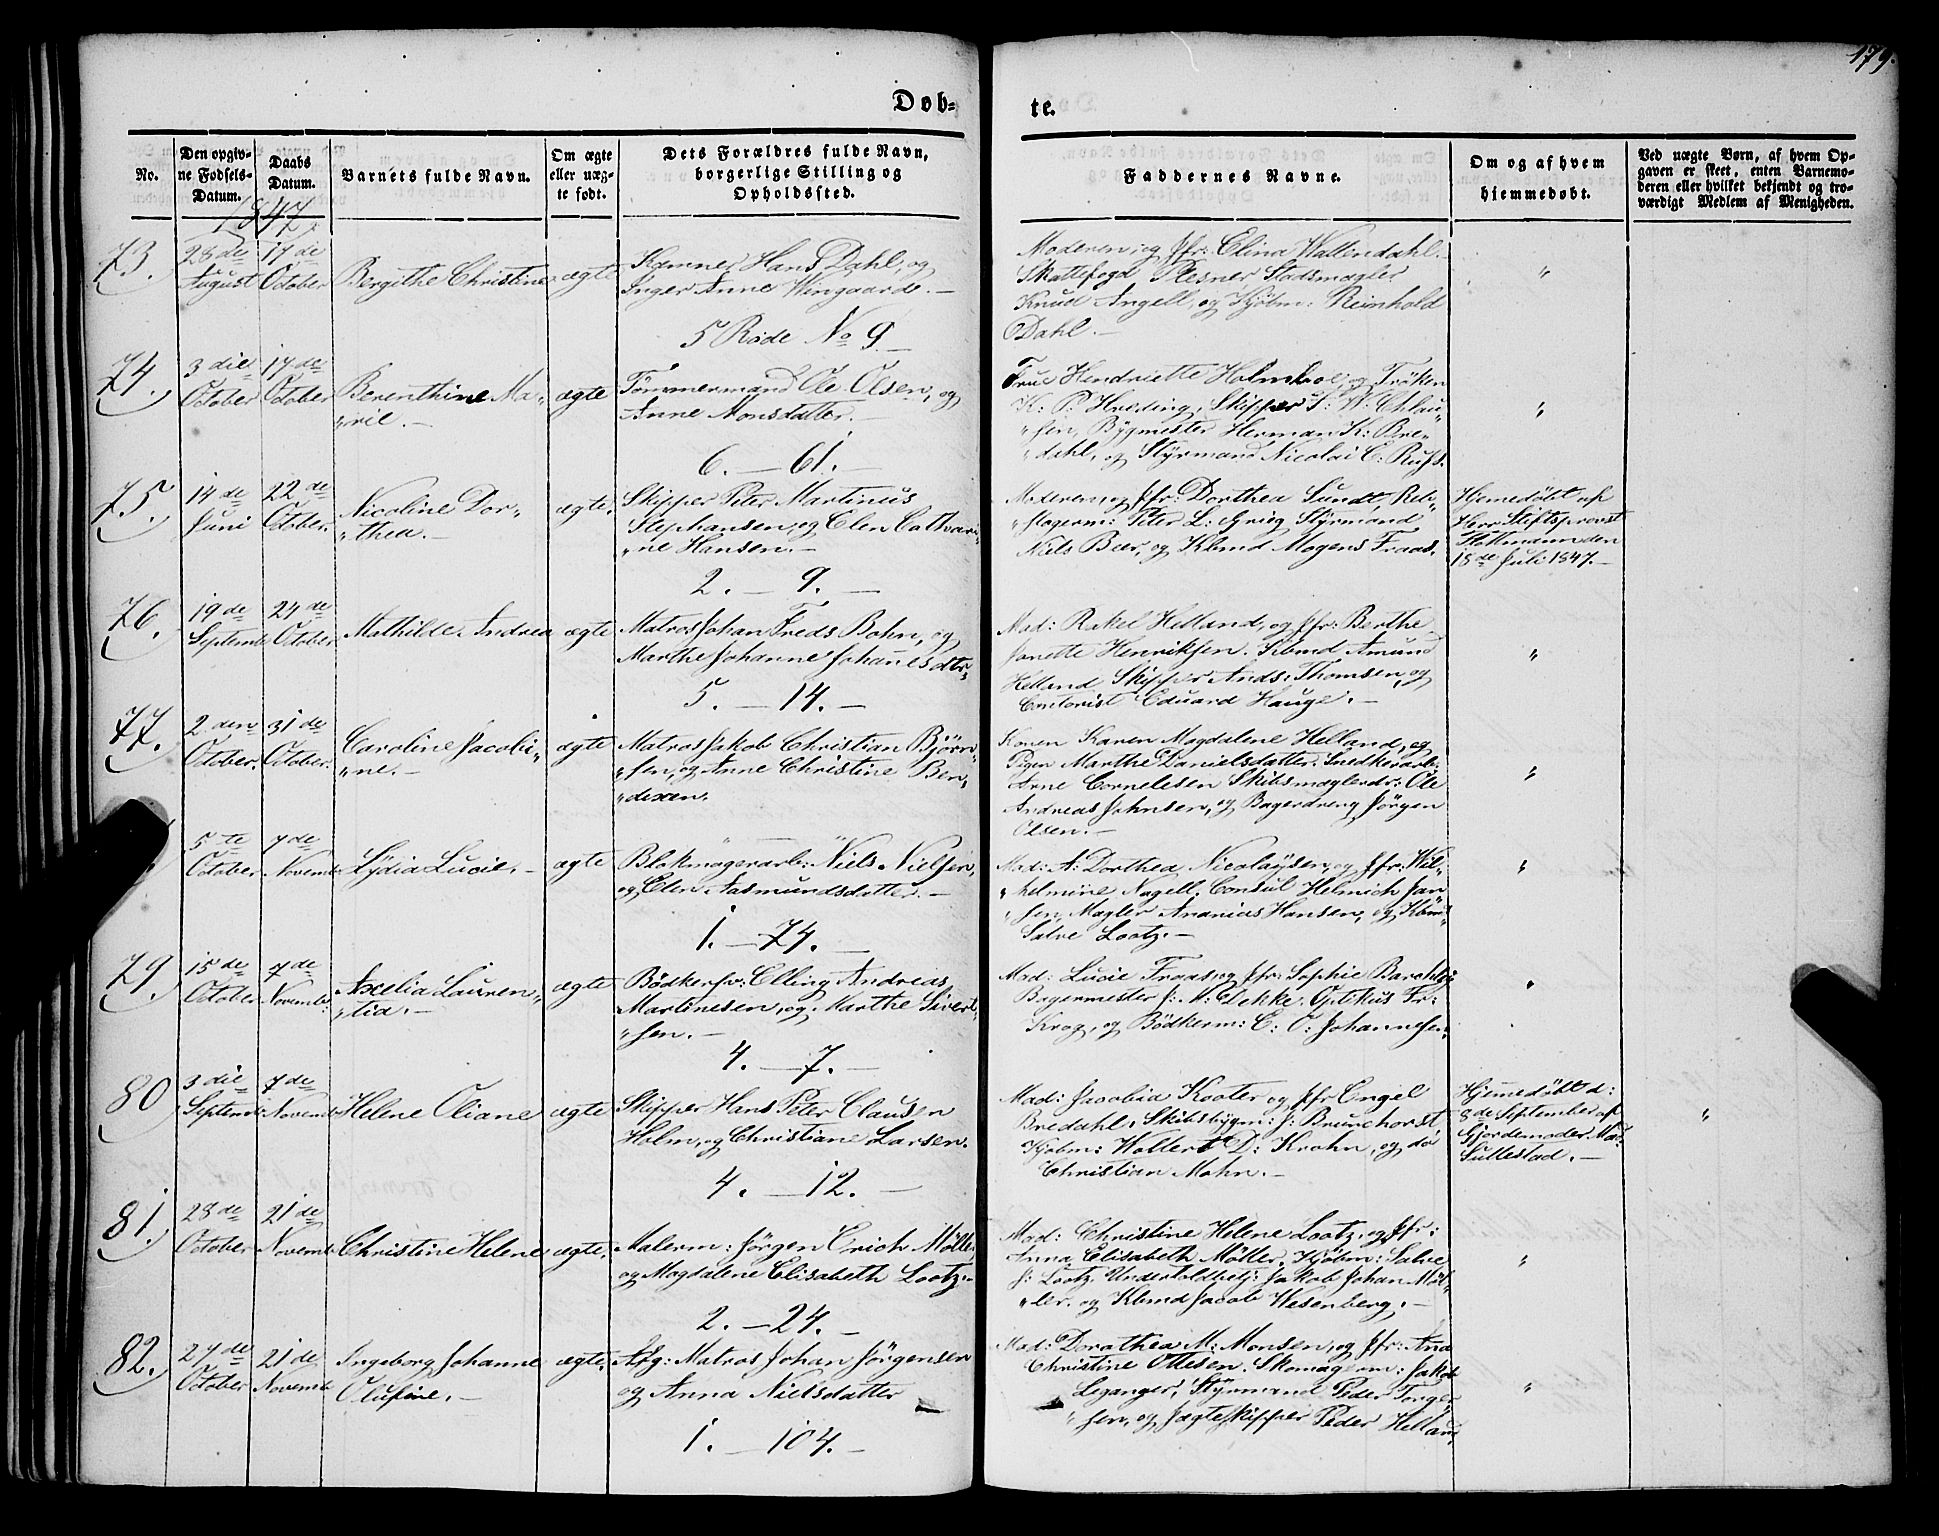 179.
Døb=
te.
No.
Den opgiv=
ne Fødsels=
Datum.
Daabs
Datum.
Barnets fulde Navn.
Om ægte
eller uæg=
te født.
Dets Forældres fulde Navn,
borgerlige Stilling og
Opholdssted.
Faddernes Navne.
Om og af hvem
hjemmedøbt.
Ved uægte Børn, af hvem Op=
gaven er skeet, enten Barnemo=
deren eller hvilket bekjendt og tro=
værdigt Medlem af Menigheden.
1847.
73.
28de
August
17de
October
Birgithe Christine
ægte
Kæmner Hans Dahl, og
Inger Anne Wingaard.—
5 Rode No 9.—
Moderen, og Jfr: Elina Wallendahl.
Skattefogd Plesner Stadsmægler
Knud Angell, og Kjøbm: Reinhold
Dahl.—
"
74.
3die
October
17de
October
Berenthine Ma=
"rie.—
ægte
Tømmermand Ole Olsen, og
Anne Monsdatter.—
6.—61.—
Frue Henriette Holmboe, og Frøken
K: P: Hveding, Skipper S: W: Chlau"
"sen, Bygmester Herman K: Bre"
"dahl, og Styrmand Nicolai C: Russ.
"
75.
14de
Juni
22de
October.
Nicoline Dor"
"thea.—
ægte.
Skipper Peter Martinus
Stephansen, og Elen Cathari"
"ne Hansen.—
2.—9.—
Moderen, og Jfr: Dorthea Sundt, Reb"
"slagerm: Peter L: Grieg Styrmand
Niels Beer, og Kbmd Mogens Fraas.
Hjemedøbt af
Herr Stiftsprovst
den
18de Juli 1847.—
76.
19de
Septemb:
24de
October
Mathilde Andrea
ægte
Matros Johan Freds Bohn, og
Marthe Johanne Johanesdtr,
5.—14.—
Mad: Rakel Helland, og Jfr: Berthe
Janette Henriksen. Kbmd Amund
Helland Skipper Ands: Thomsen, og
Contorist Eduard Hauge.—
"
77.
2den
October.
31de
October.
Caroline Jacobi"
"ne.—
ægte
Matros Jakob Christian Bjørn"
"sen, og Anne Christine Ben"
"dixen.
Konen Karen Magdalene Helland, og
Pigen Marthe Danielsdatter. Snedkerarb:
Arne Cornelesen Skibsmæglerdr: Ole
Andreas Johnsen, og Bagerdreng Jörgen
Olsen.—
"
5te
October
7de
Novemb:
Lydia Lucie.—
ægte
Blokmagerarb: Niels Nielsen,
og Elen Aasmundsdatter.—
1.—74.—
Mad: A: Dorthea Nicolaysen, og Jfr: Wil"
"helmine Nagell. Consul Helmich Jan"
"sen, Mægler Ananias Hansen, og Kbmd
Salve Lootz.—
"
79.
15de
October
7de
Novemb:
Axelia Lauren"
"tia.—
ægte
Bödkersv: Elling Andreas
Martinesen, og Marthe Sivert"
"sen.—
4.—7.—
Mad: Lucie Fraas, og Jfr: Sophie
Bagermester J: M: Dekke. Optikus Fr:
Krog, og Bödkerm: C: O: Johannesen.
"
80
3die
Septemb:
7de
Novemb:
Helene Oliane
ægte
Skipper Hans Peter Clausen
Holm, og Christiane Larsen.
4.—12.—
Mad: Jacobia Kooter og Jfr Engel
Bredahl. Skibsbygm: J: Brunchorst
Kjøbm: Wollert D: Krohn, og do
Christian Mohn.—
Hjemedøbt d:
8de September af
Gjordemoder Mad:
Sullestad.—
"
81.
28de
October
21de
Novemb:
Christine Helene
ægte.
Malerm: Jörgen Erich Möller,
og Magdalene Elisabeth Lootz.—
2.—24.—
Mad: Christine Helene Lootz, og Jfr:
Anna Elisabeth Möller. Kjøbm: Salve
J: Lootz. Undertoldbetj: Jakob Johan Möl"
"ler. og Kbmd Jacob Wesenberg.—
"
82.
27de
October
21de
Novemb:
Ingeborg Johanne
Olufine.—
ægte.
Afg: Matros Johan Jörgensen
og Anna Nielsdatter
1.—104.—
Mad: Dorothea M: Monsen, og Jfr: Ana
Christine Ottesen. Skomagerm: Jakob
Leganger, Styrmand Peder Torger
"sen, og Jægteskipper Peder Helland,
"